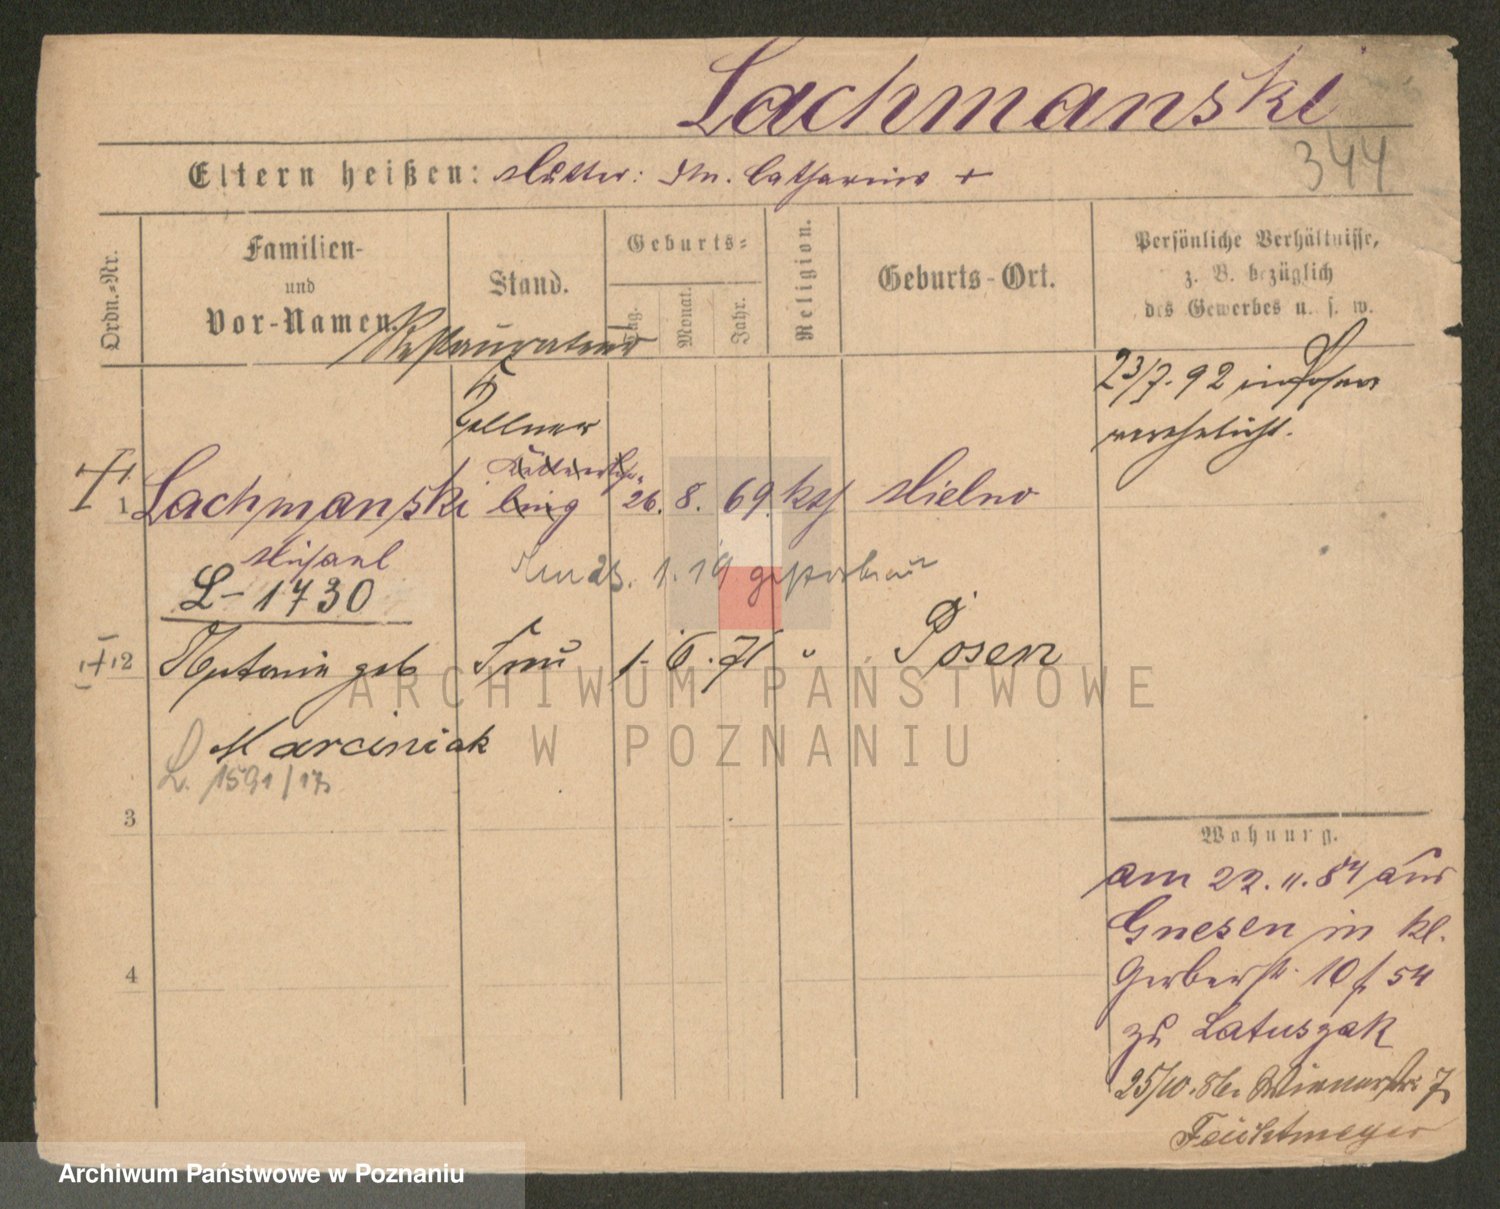 Lachmanski
344
Eltern heißen: Mutter: Catharina +
Ordn.-Nr.
Familien-
und
Vor-Namen.
Stand.
Geburts-
Tag.
Monat.
Jahr.
Religion.
Geburts-Ort.
Persönliche Verhältnisse,
z. B. bezüglich
des Gewerbes u. s. w.
Restaurateur
Kellner
23/7.92 in Posen
verehelicht.
1 Lachmanski ling 26. 8. 69. kth Mielno
Michael
L-1730
Am 23. 1. 19 gestorben
2 Antonie geb Frau 1. 6. 71 " Posen
Marciniak
L. 1591/17
3
4
Wohnung.
am 22.11.84 aus
Gnesen in kl.
Gerberstr. 10 f 54
zu Latuszak
25/10.86. Wienerstr. 7
Feichtmeyer
ARCHIWUM PAŃSTWOWE
W POZNANIU
Archiwum Państwowe w Poznaniu